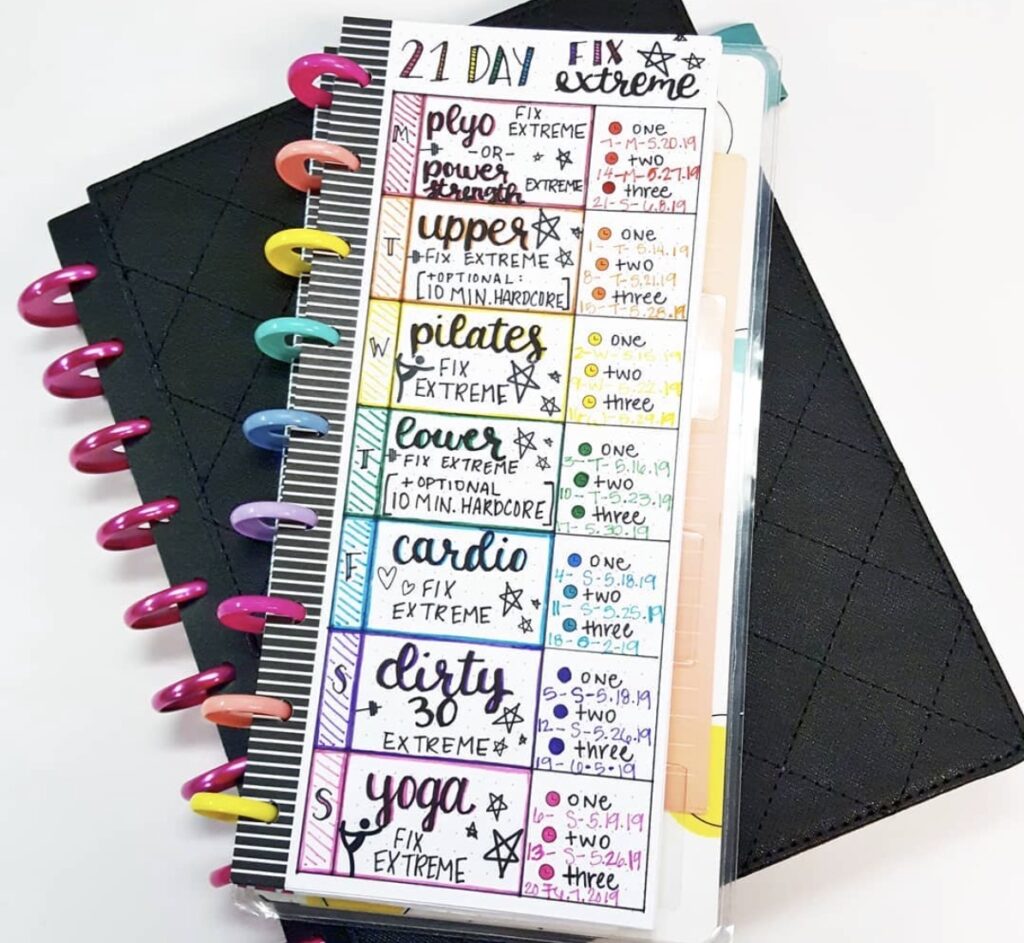 21 DAY FIX
extreme
M plyo FIX
EXTREME
-OR-
power
strength EXTREME
one
7-M-5.20.19
two
14-M-5.27.19
three
21-S-6.8.19
T upper
FIX EXTREME
+OPTIONAL:
[10 MIN. HARDCORE]
one
1-T-5.14.19
two
8-T-5.21.19
three
15-T-5.28.19
W pilates
FIX
EXTREME
one
2-W-5.15.19
two
9-W-5.22.19
three
5.29.19
T lower
FIX EXTREME
[+OPTIONAL
10 MIN. HARDCORE]
one
3-T-5.16.19
two
10-T-5.23.19
three
17-5.30.19
F cardio
FIX
EXTREME
one
4-S-5.18.19
two
11-S-5.25.19
three
S dirty
30
EXTREME
one
5-S-5.18.19
two
12-S-5.26.19
three
19-6.5.19
S yoga
FIX
EXTREME
one
6-S-5.19.19
two
13-S-5.26.19
three